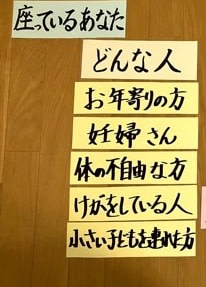 座っているあなた
どんな人
お年寄りの方
妊婦さん
体の不自由な方
けがをしている人
小さい子どもを連れた方